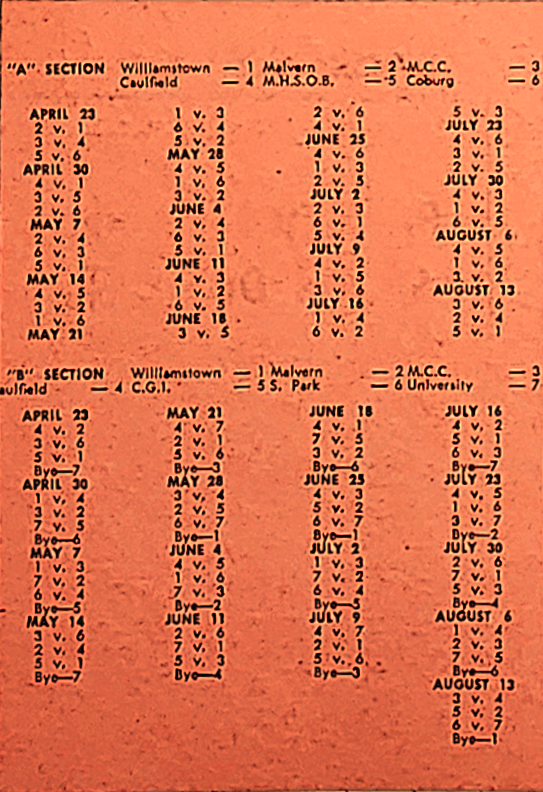 "A" SECTION Williamstown — 1 Malvern — 2 M.C.C. — 3
Caulfield — 4 M.H.S.O.B. — 5 Coburg — 6
APRIL 23
2 v. 1
3 v. 4
5 v. 6
APRIL 30
4 v. 1
3 v. 5
2 v. 6
MAY 7
2 v. 4
6 v. 3
5 v. 1
MAY 14
4 v. 5
3 v. 2
1 v. 6
MAY 21
1 v. 3
6 v. 4
5 v. 2
MAY 28
4 v. 5
1 v. 6
3 v. 2
JUNE 4
2 v. 4
6 v. 3
5 v. 1
JUNE 11
4 v. 3
1 v. 2
6 v. 5
JUNE 18
3 v. 5
2 v. 6
4 v. 1
JUNE 25
4 v. 6
1 v. 3
2 v. 5
JULY 2
2 v. 3
6 v. 1
5 v. 4
JULY 9
4 v. 2
1 v. 5
3 v. 6
JULY 16
1 v. 4
6 v. 2
5 v. 3
JULY 23
4 v. 6
3 v. 1
2 v. 5
JULY 30
4 v. 3
1 v. 2
6 v. 5
AUGUST 6
4 v. 5
1 v. 6
3 v. 2
AUGUST 13
3 v. 6
2 v. 4
5 v. 1
"B" SECTION Williamstown — 1 Malvern — 2 M.C.C. — 3
aulfield — 4 C.G.I. — 5 S. Park — 6 University — 7
APRIL 23
4 v. 2
3 v. 6
5 v. 1
Bye—7
APRIL 30
1 v. 4
3 v. 2
7 v. 5
Bye—6
MAY 7
1 v. 3
7 v. 2
6 v. 4
Bye—5
MAY 14
3 v. 6
2 v. 4
5 v. 1
Bye—7
MAY 21
4 v. 7
2 v. 1
5 v. 6
Bye—3
MAY 28
3 v. 4
2 v. 5
6 v. 7
Bye—1
JUNE 4
4 v. 5
1 v. 6
7 v. 3
Bye—2
JUNE 11
2 v. 6
7 v. 1
5 v. 3
Bye—4
JUNE 18
4 v. 1
7 v. 5
3 v. 2
Bye—6
JUNE 25
4 v. 3
5 v. 2
6 v. 7
Bye—1
JULY 2
1 v. 3
7 v. 2
6 v. 4
Bye—5
JULY 9
4 v. 7
2 v. 1
5 v. 6
Bye—3
JULY 16
4 v. 2
5 v. 1
6 v. 3
Bye—7
JULY 23
4 v. 5
1 v. 6
3 v. 7
Bye—2
JULY 30
2 v. 6
7 v. 1
5 v. 3
Bye—4
AUGUST 6
1 v. 4
2 v. 3
7 v. 5
Bye—6
AUGUST 13
3 v. 4
5 v. 2
6 v. 7
Bye—1